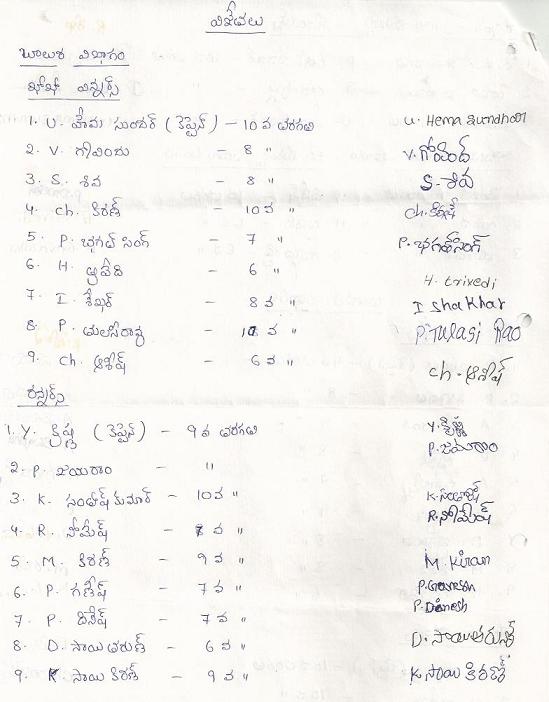 విజేతలు
బాలుర విభాగం
ఖోఖో విన్నర్స్
1. U. హేమ సుందర్ (కెప్టెన్) – 10 వ తరగతి U. Hema Sundhar
2. V. గోవిందు – 8 " V. గోవింద్
3. S. శివ – 8 " S. శివ
4. Ch. కిరణ్ – 10 వ " Ch. కిరణ్
5. P. భగత్ సింగ్ – 7 " P. భగత్ సింగ్
6. H. త్రివేది – 6 " H. trivedi
7. I. శేఖర్ – 8 వ " I Shakhar
8. P. తులసీరావు – 10 వ " P. Tulasi Rao
9. Ch. ఆశిష్ – 6 వ " Ch. ఆశిష్
రన్నర్స్
1. Y. కృష్ణ (కెప్టెన్) – 9 వ తరగతి Y. కృష్ణ
2. P. జయరాం – " P. జయరాం
3. K. సంతోష్ కుమార్ – 10 వ " K. సంతోష్
4. R. సోమేష్ – 8 వ " R. సోమేష్
5. M. కిరణ్ – 9 వ " M. Kiran
6. P. గణేష్ – 7 వ " P. Ganesh
7. P. దినేష్ – 7 వ " P. Dinesh
8. D. సాయి తరుణ్ – 6 వ " D. సాయి తరుణ్
9. K. సాయి కిరణ్ – 9 వ " K. సాయి కిరణ్